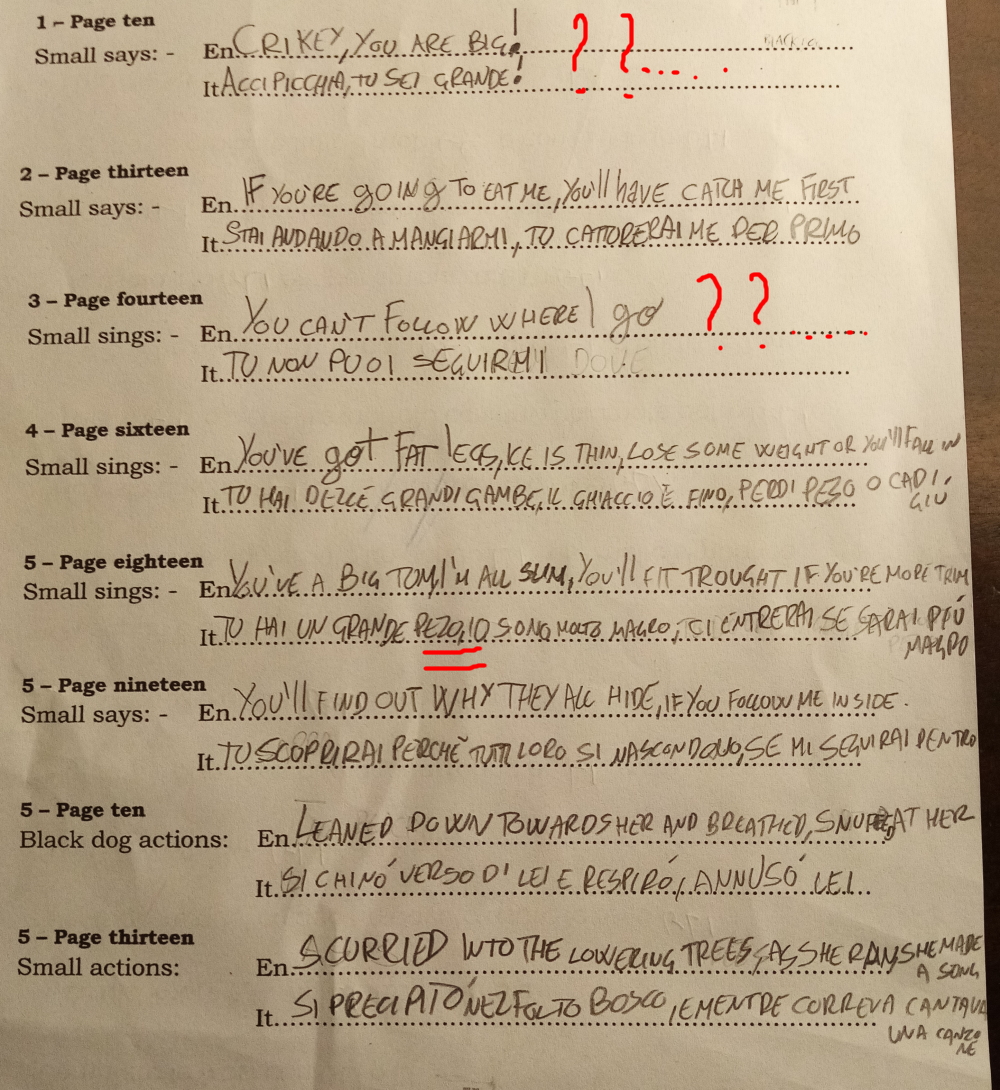 1 – Page ten
Small says: - En CRIKEY, YOU ARE BIG! ? ?
It ACCIPICCHIA, TU SEI GRANDE!
2 – Page thirteen
Small says: - En. IF YOU'RE gOING TO EAT ME, YOU'll hAVE CATCH ME FIRST
It. STAI ANDANDO A MANGIARMI, TU CATTURERAI ME PER PRIMO
3 – Page fourteen
Small sings: - En YOU CAN'T FOLLOW WHERE I go ? ?
It. TU NON PUOI SEGUIRMI DOVE
4 – Page sixteen
Small sings: - En YOU'VE got FAT lEGS, ICE IS THIN, LOSE SOME WEIGHT OR YOU'll FALL IN
It. TU HAI DELLE GRANDI GAMBE, IL GHIACCIO È FINO, PERDI PEZO O CADI
GIÙ
5 – Page eighteen
Small sings: - En YOU'VE A BIG TOM, I'M ALL SLIM, YOU'll FIT TROUGHT IF YOU'RE MORE TRIM
It. TU HAI UN GRANDE PEZO, IO SONO MOLTO MAGRO, TI CI ENTRERAI SE SARAI PIÚ
MAGRO
5 – Page nineteen
Small says: - En. YOU'll FIND OUT WHY THEY ALL HIDE, IF YOU FOLLOW ME INSIDE.
It. TU SCOPRIRAI PERCHÈ TUTTI LORO SI NASCONDONO, SE MI SEGUIRAI DENTRO
5 – Page ten
Black dog actions: En. LEANED DOWN TOWARDS HER AND BREATHED, AT HER
It. SI CHINÓ VERSO DI LEI E RESPIRÓ, ANNUSÓ LEI
5 – Page thirteen
Small actions: En. SCURRIED INTO THE LOWERING TREES, AS SHE RAN SHE MADE
A SONG
It. SI PRECIPITÓ NEL FOLTO BOSCO, E MENTRE CORREVA CANTAVA
UNA CANZO
NE